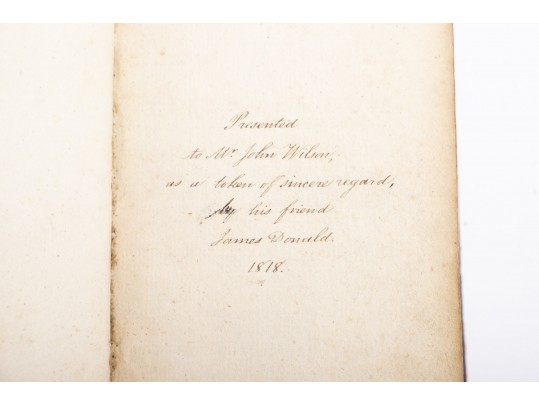 Presented
to Mr. John Wilson,
as a token of sincere regard,
by his friend
James Donald.
1878.